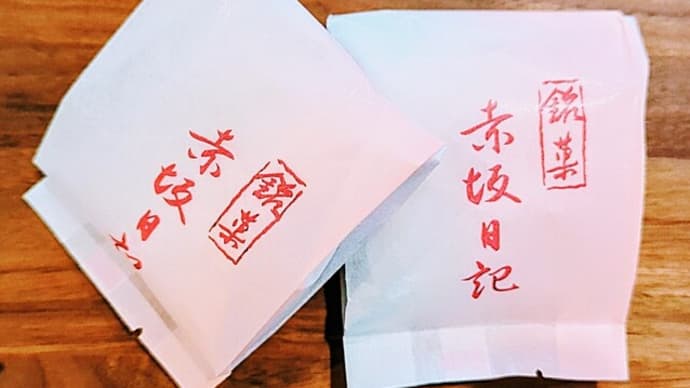 銘菓
赤坂日
銘菓
赤坂日記